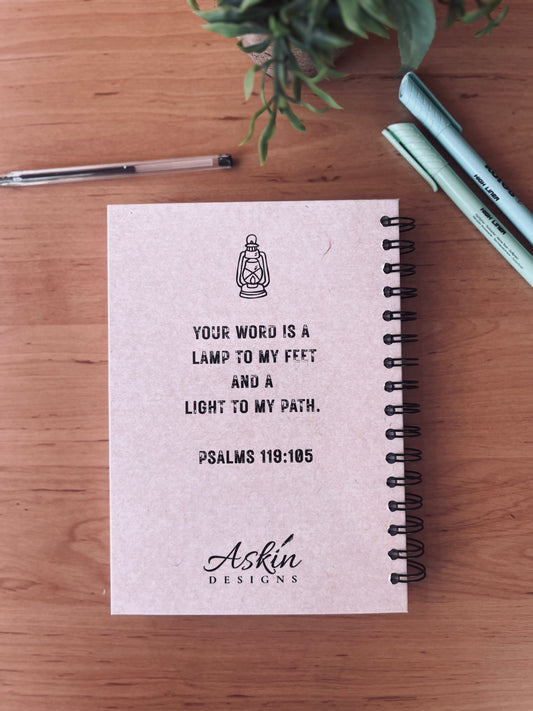 YOUR WORD IS A
LAMP TO MY FEET
AND A
LIGHT TO MY PATH.
PSALMS 119:105
Askin
DESIGNS
HIGH LINER
HIGH LINER